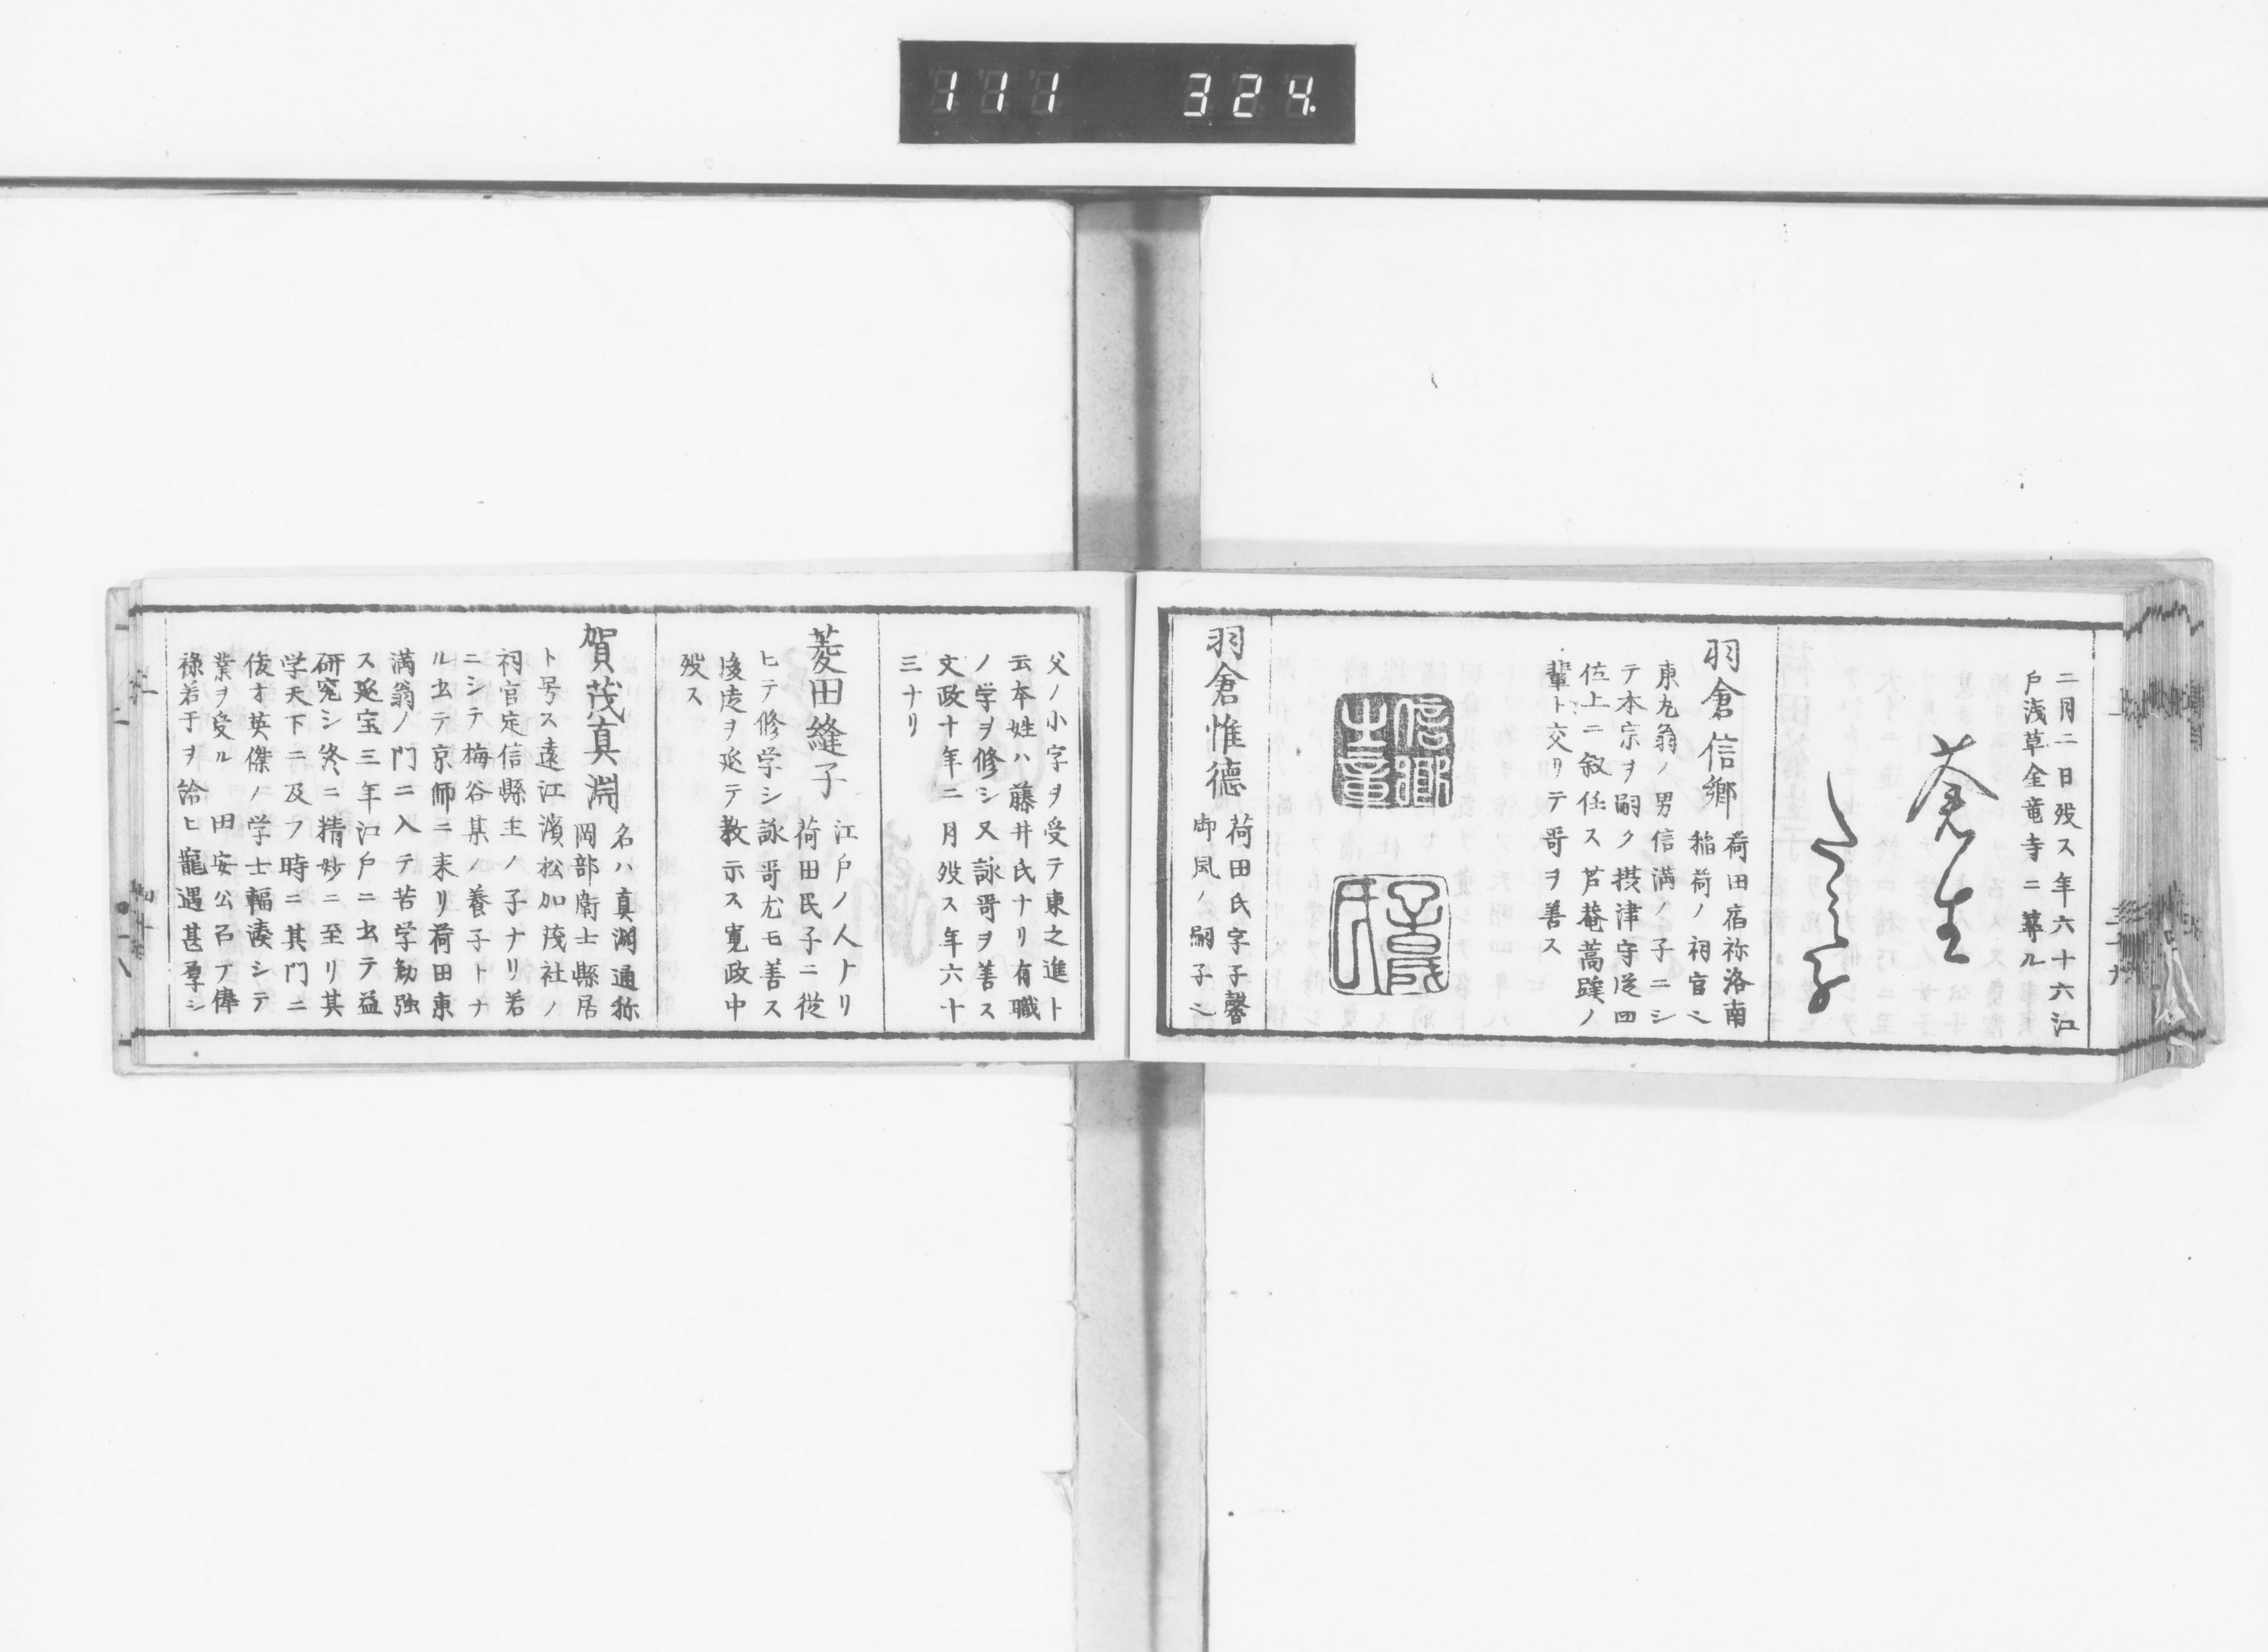 111 324
二月二日歿ス年六十六江
戸浅草金竜寺ニ葬ル
蒼生
羽倉信郷
荷田宿祢洛南
稲荷ノ祠官也
東丸翁ノ男信満ノ子ニシ
テ本宗ヲ嗣ク摂津守従四
位上ニ叙任ス芦菴蒿蹊ノ
輩ト交リテ哥ヲ善ス
信郷
羽倉惟徳
荷田氏字子馨
御風ノ嗣子也
父ノ小字ヲ受テ東之進ト
云本姓ハ藤井氏ナリ有職
ノ学ヲ修シ又詠哥ヲ善ス
文政十年二月歿ス年六十
三ナリ
菱田縫子
江戸ノ人ナリ
荷田民子ニ従
ヒテ修学シ詠哥尤モ善ス
後虔ヲ延テ教示ス寛政中
歿ス
賀茂真淵
名ハ真淵通称
岡部衛士縣居
ト号ス遠江濱松加茂社ノ
祠官定信縣主ノ子ナリ若
ニシテ梅谷某ノ養子トナ
ル出テ京師ニ来リ荷田東
満翁ノ門ニ入テ苦学勉強
ス延宝三年江戸ニ出テ益
研究シ終ニ精妙ニ至リ其
学天下ニ及フ時ニ其門ニ
俊才英傑ノ学士輻湊シテ
業ヲ受ル 田安公召フ俸
禄若干ヲ給ヒ寵遇甚厚シ